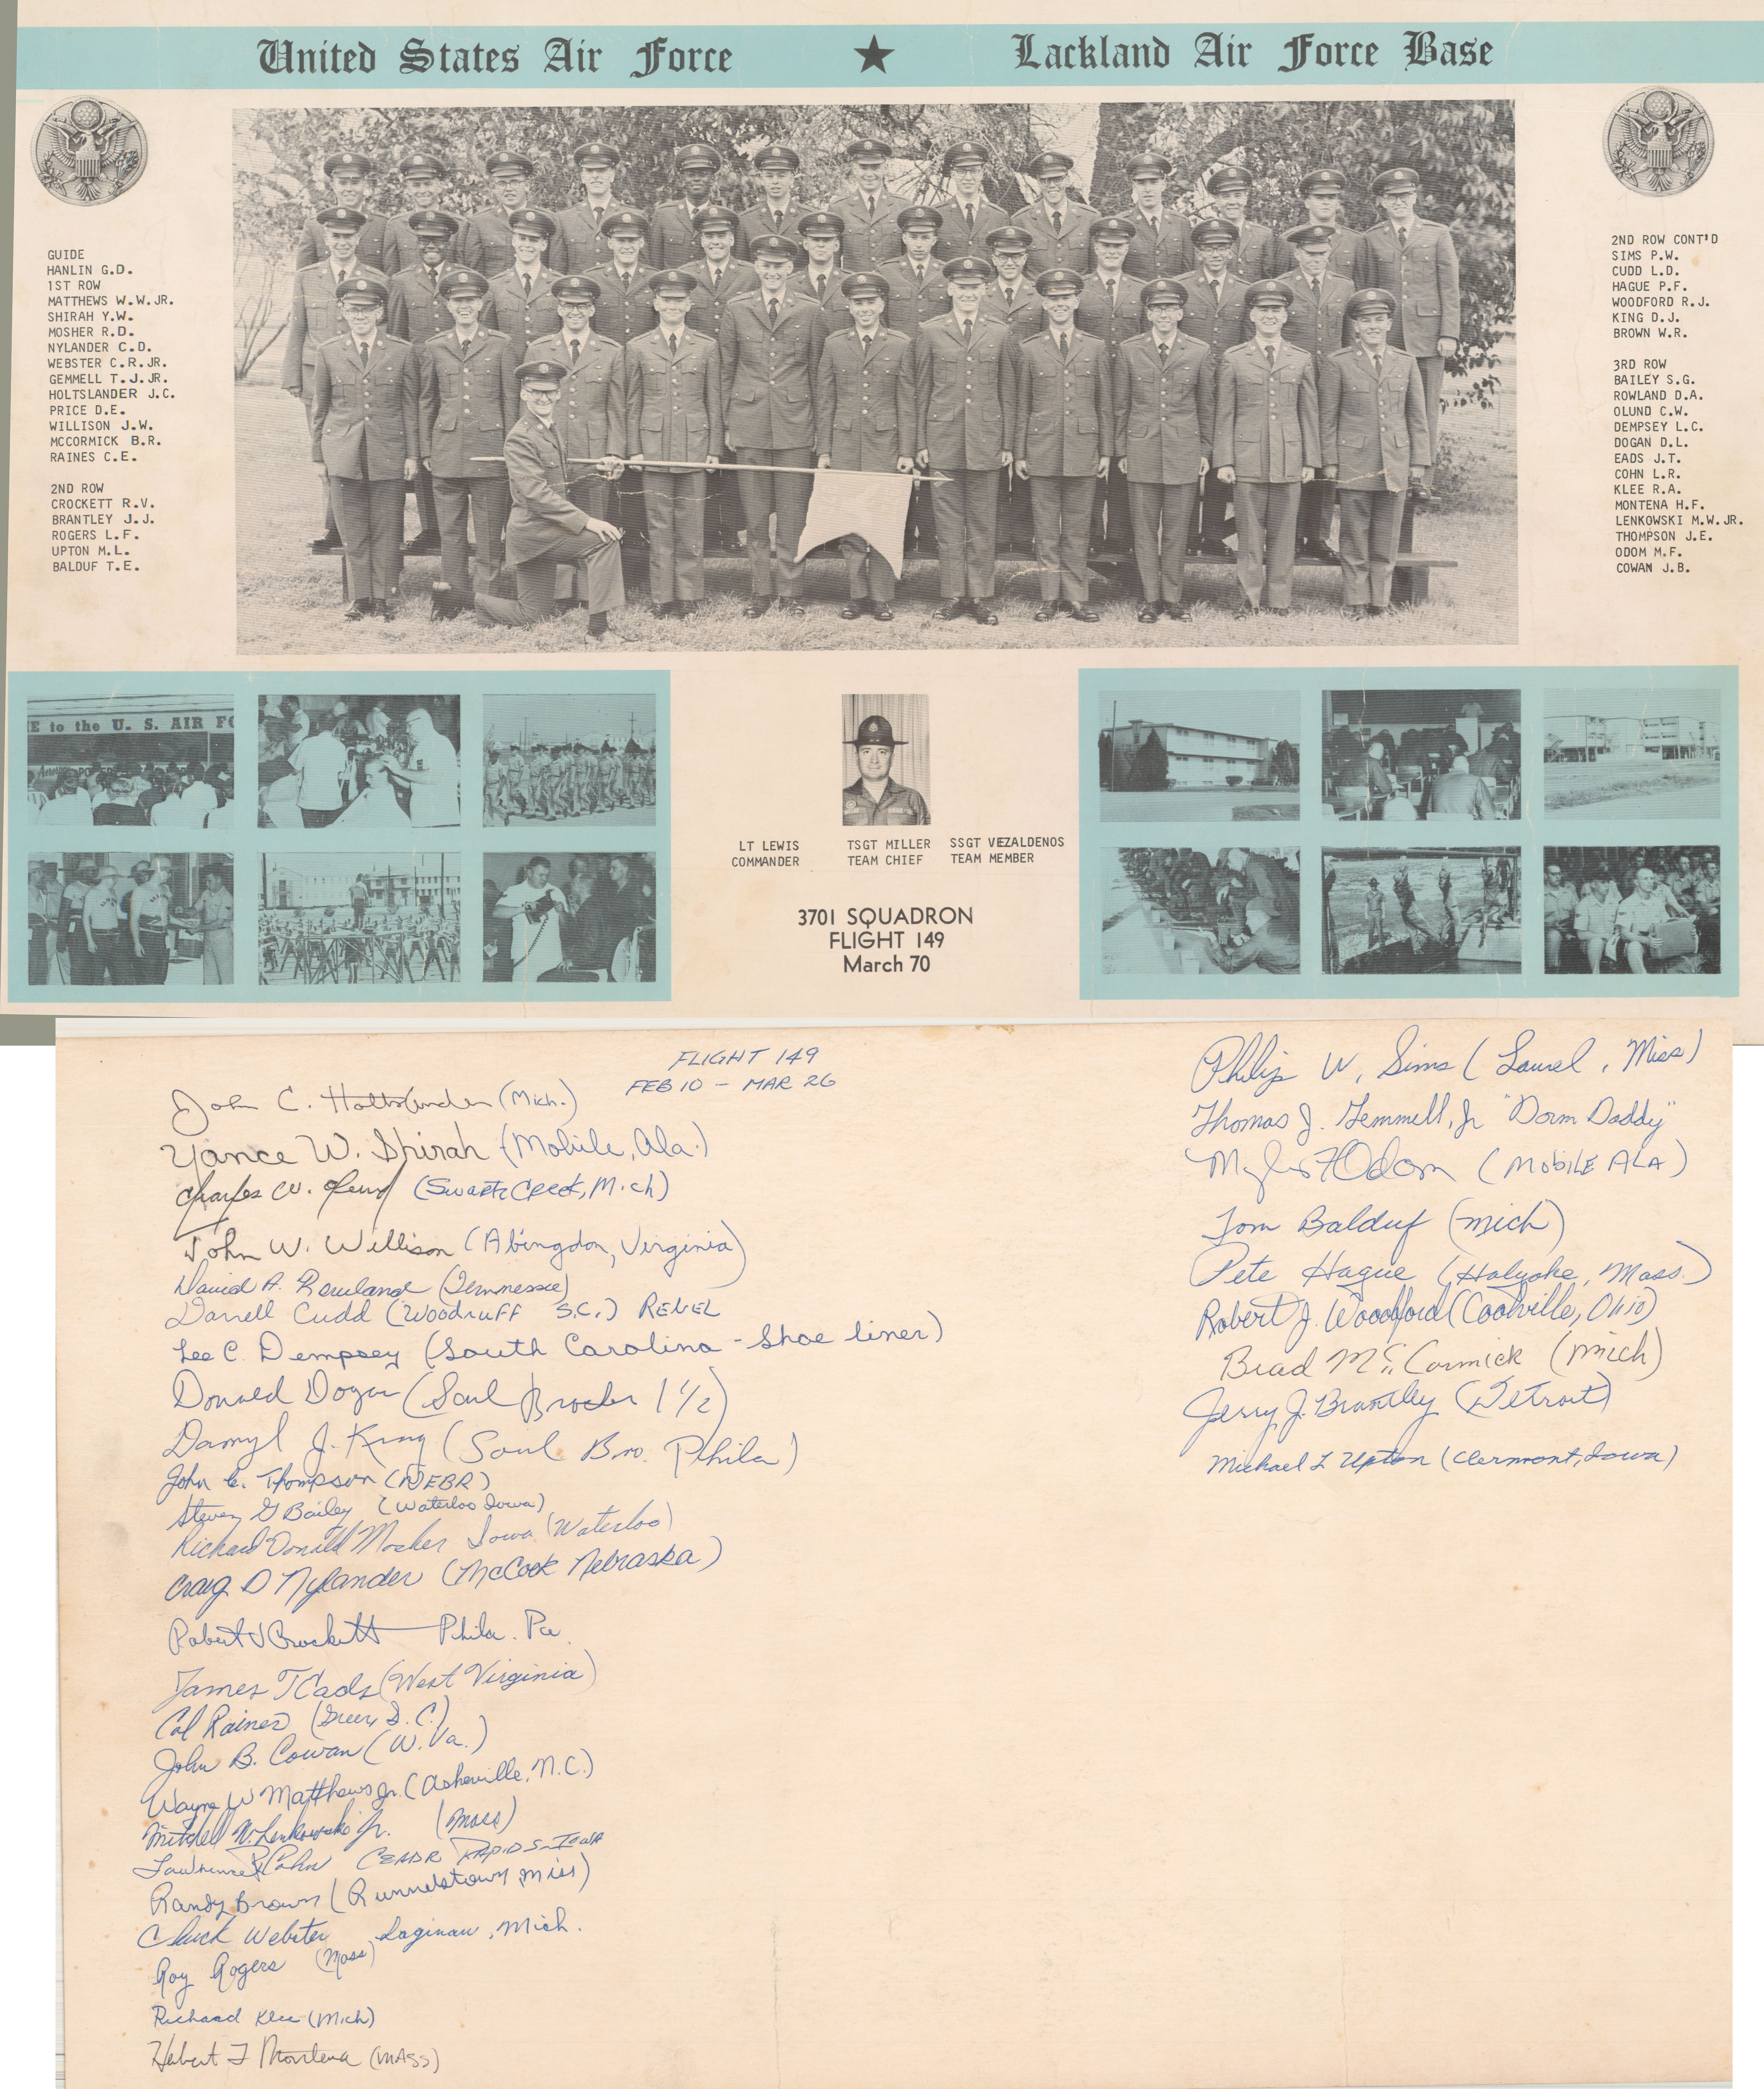 United States Air Force ★ Lackland Air Force Base
GUIDE
HANLIN G.D.
1ST ROW
MATTHEWS W.W.JR.
SHIRAH Y.W.
MOSHER R.D.
NYLANDER C.D.
WEBSTER C.R.JR.
GEMMELL T.J.JR.
HOLTSLANDER J.C.
PRICE D.E.
WILLISON J.W.
MCCORMICK B.R.
RAINES C.E.
2ND ROW
CROCKETT R.V.
BRANTLEY J.J.
ROGERS L.F.
UPTON M.L.
BALDUF T.E.
2ND ROW CONT'D
SIMS P.W.
CUDD L.D.
HAGUE P.F.
WOODFORD R.J.
KING D.J.
BROWN W.R.
3RD ROW
BAILEY S.G.
ROWLAND D.A.
OLUND C.W.
DEMPSEY L.C.
DOGAN D.L.
EADS J.T.
COHN L.R.
KLEE R.A.
MONTENA H.F.
LENKOWSKI M.W.JR.
THOMPSON J.E.
ODOM M.F.
COWAN J.B.
E to the U. S. AIR FO
LT LEWIS
COMMANDER
TSGT MILLER
TEAM CHIEF
SSGT VEZALDENOS
TEAM MEMBER
3701 SQUADRON
FLIGHT 149
March 70
FLIGHT 149
FEB 10 - MAR 26
John C. Holtslander (Mich.)
Yance W. Shirah (Mobile, Ala.)
Charles W. Olund (Swartz Creek, Mich)
John W. Willison (Abingdon, Virginia)
David A. Rowland (Tennessee)
Darrell Cudd (Woodruff S.C.) REBEL
Lee C. Dempsey (South Carolina - Shoe liner)
Donald Dogan (Soul Brother 1 1/2)
Darryl J. King (Soul Bro. Phila)
John E. Thompson (NEBR)
Steven G Bailey (Waterloo Iowa)
Richard Donald Mosher Iowa (Waterloo)
Craig D Nylander (McCook Nebraska)
Robert V Crockett Phila. Pa.
James T Eads (West Virginia)
Cal Raines (Greer, S.C.)
John B. Cowan (W. Va.)
Wayne W Matthews Jr. (Asheville, N.C.)
Mitchell W. Lenkowski Jr. (Mass)
Lawrence R Cohn CEADR RAPIDS-IOWA
Randy Brown (Runnelstown, Miss)
Chuck Webster Saginaw, Mich.
Roy Rogers (Mass)
Richard Klee (Mich)
Hebert F Montena (MASS)
Philip W. Sims (Laurel, Miss)
Thomas J. Gemmell, Jr "Dorm Daddy"
Myles F Odom (MOBILE ALA)
Tom Balduf (Mich)
Pete Hague (Holyoke, Mass.)
Robert J. Woodford (Coolville, Ohio)
Brad McCormick (Mich)
Jerry J. Brantley (Detroit)
Michael L Upton (Clermont, Iowa)